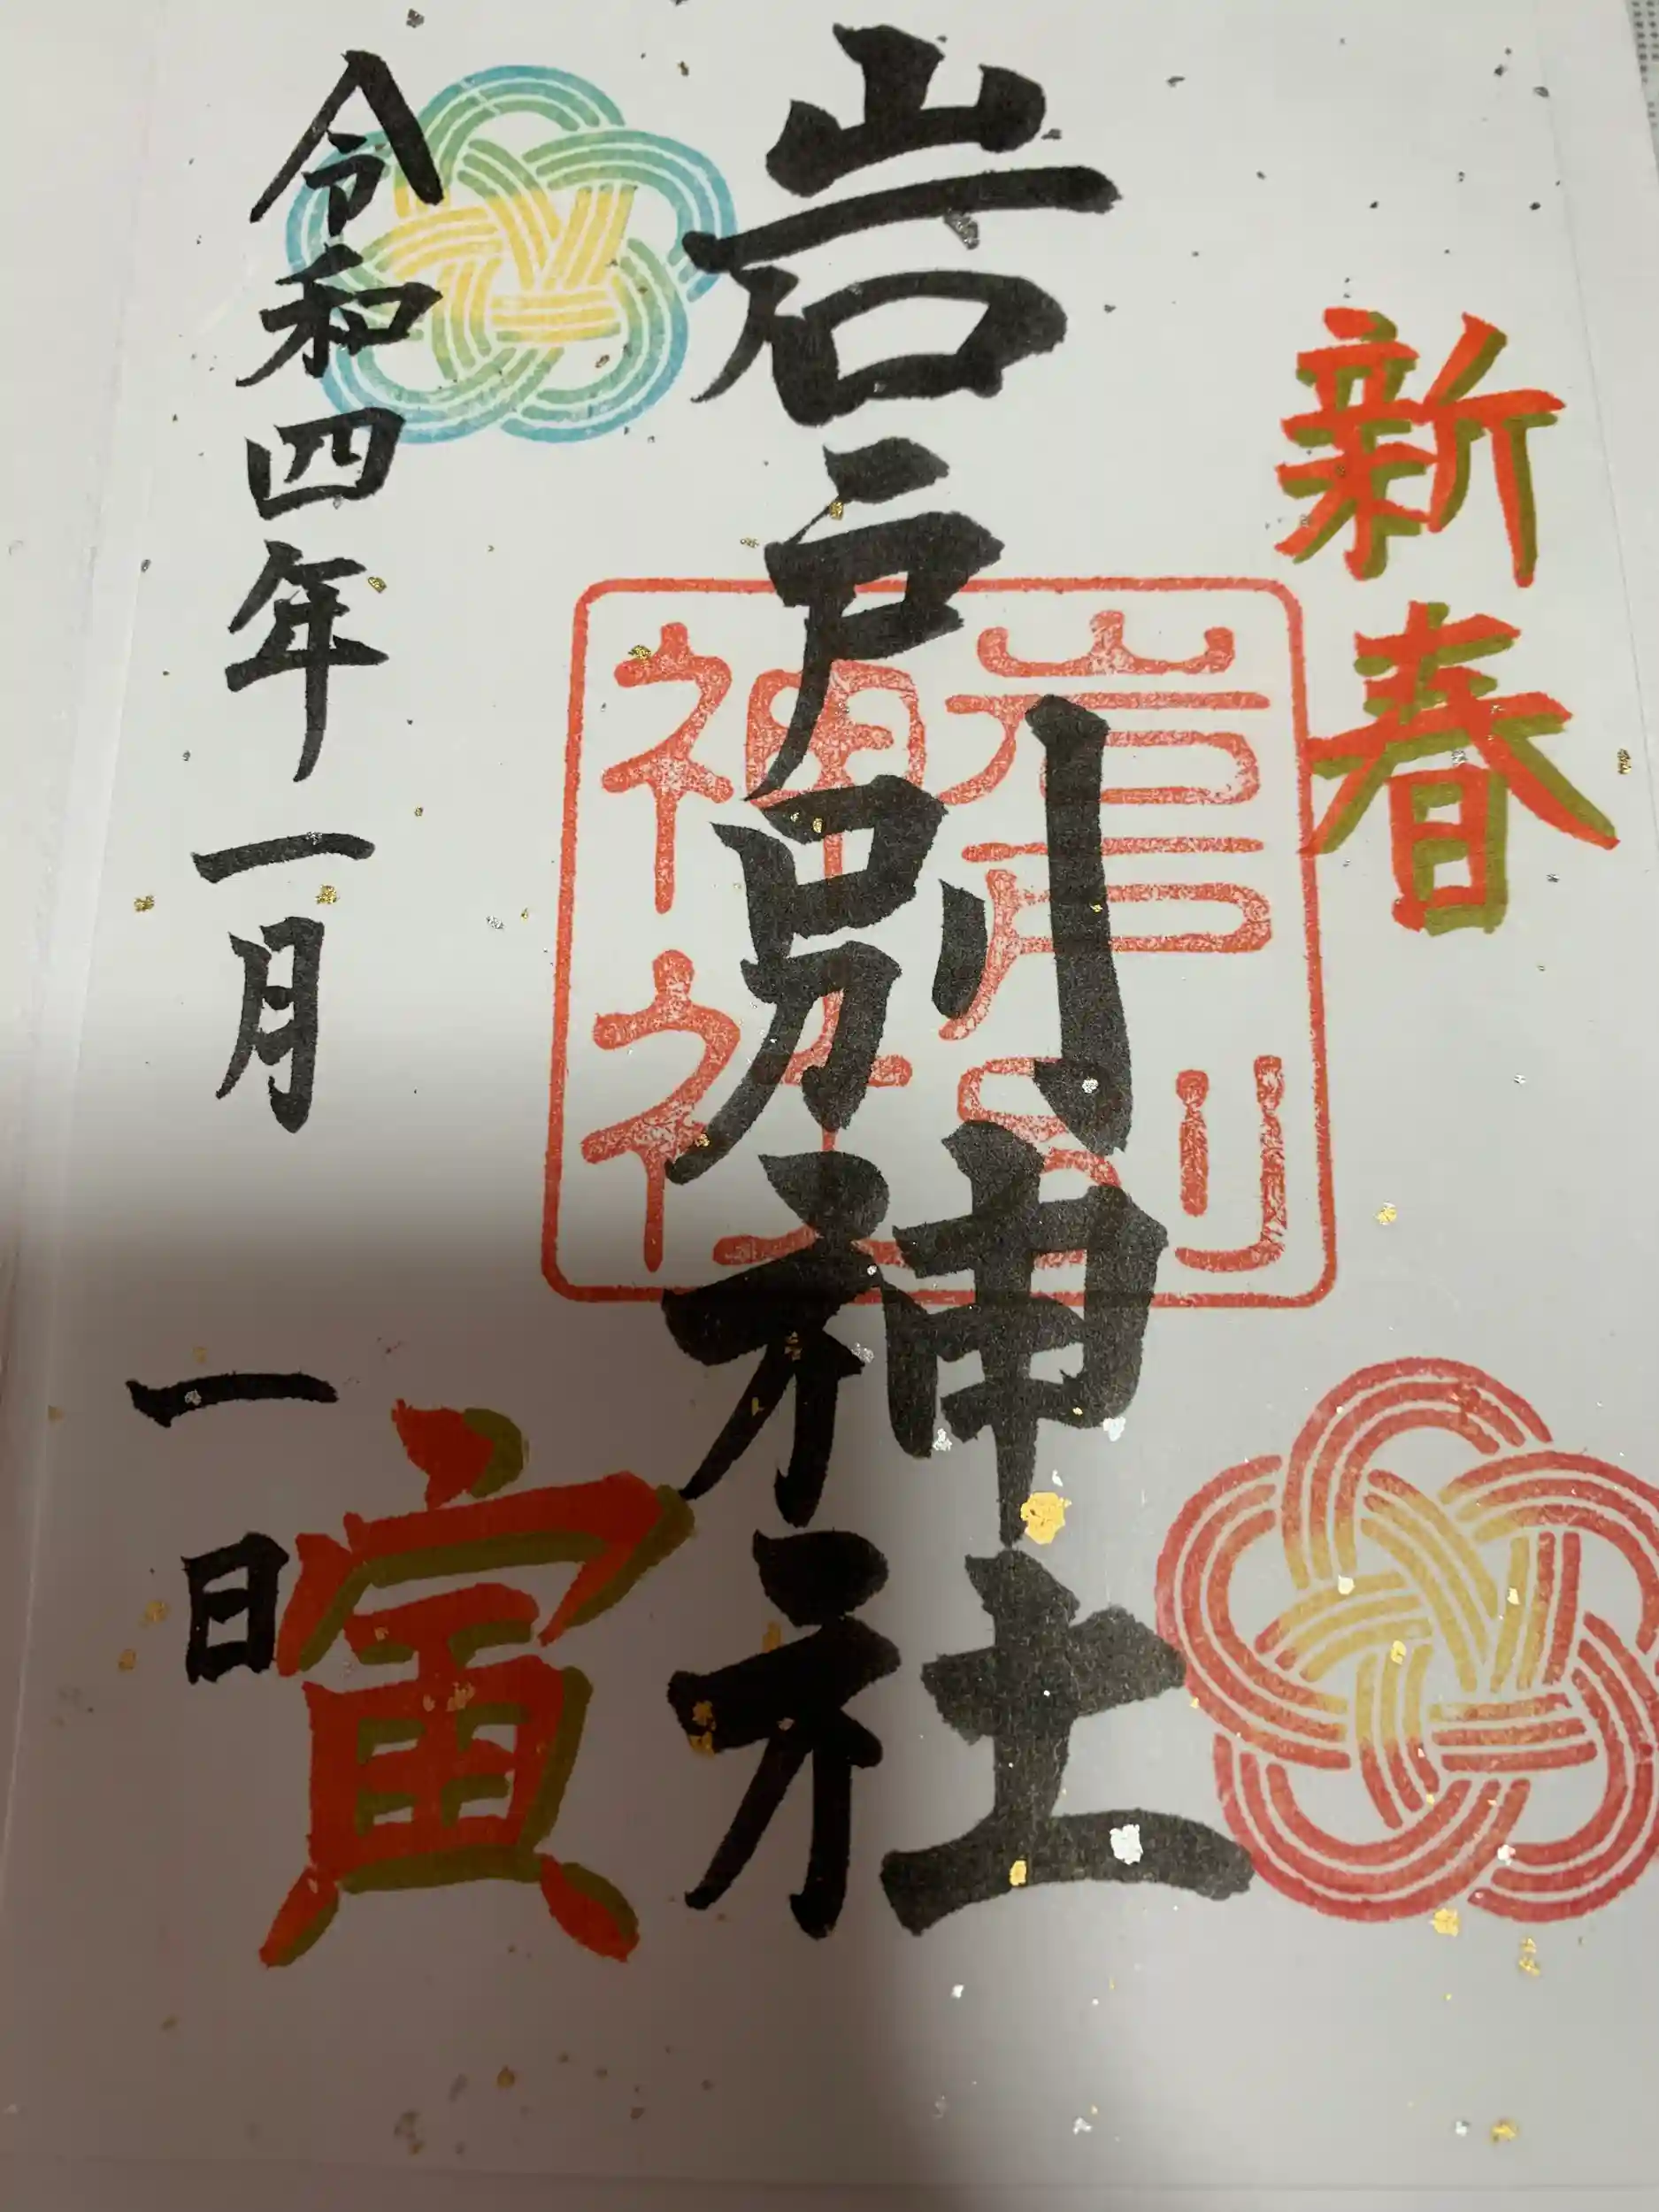 新春
岩戸別神社
岩戸別神社
令和四年一月一日
寅